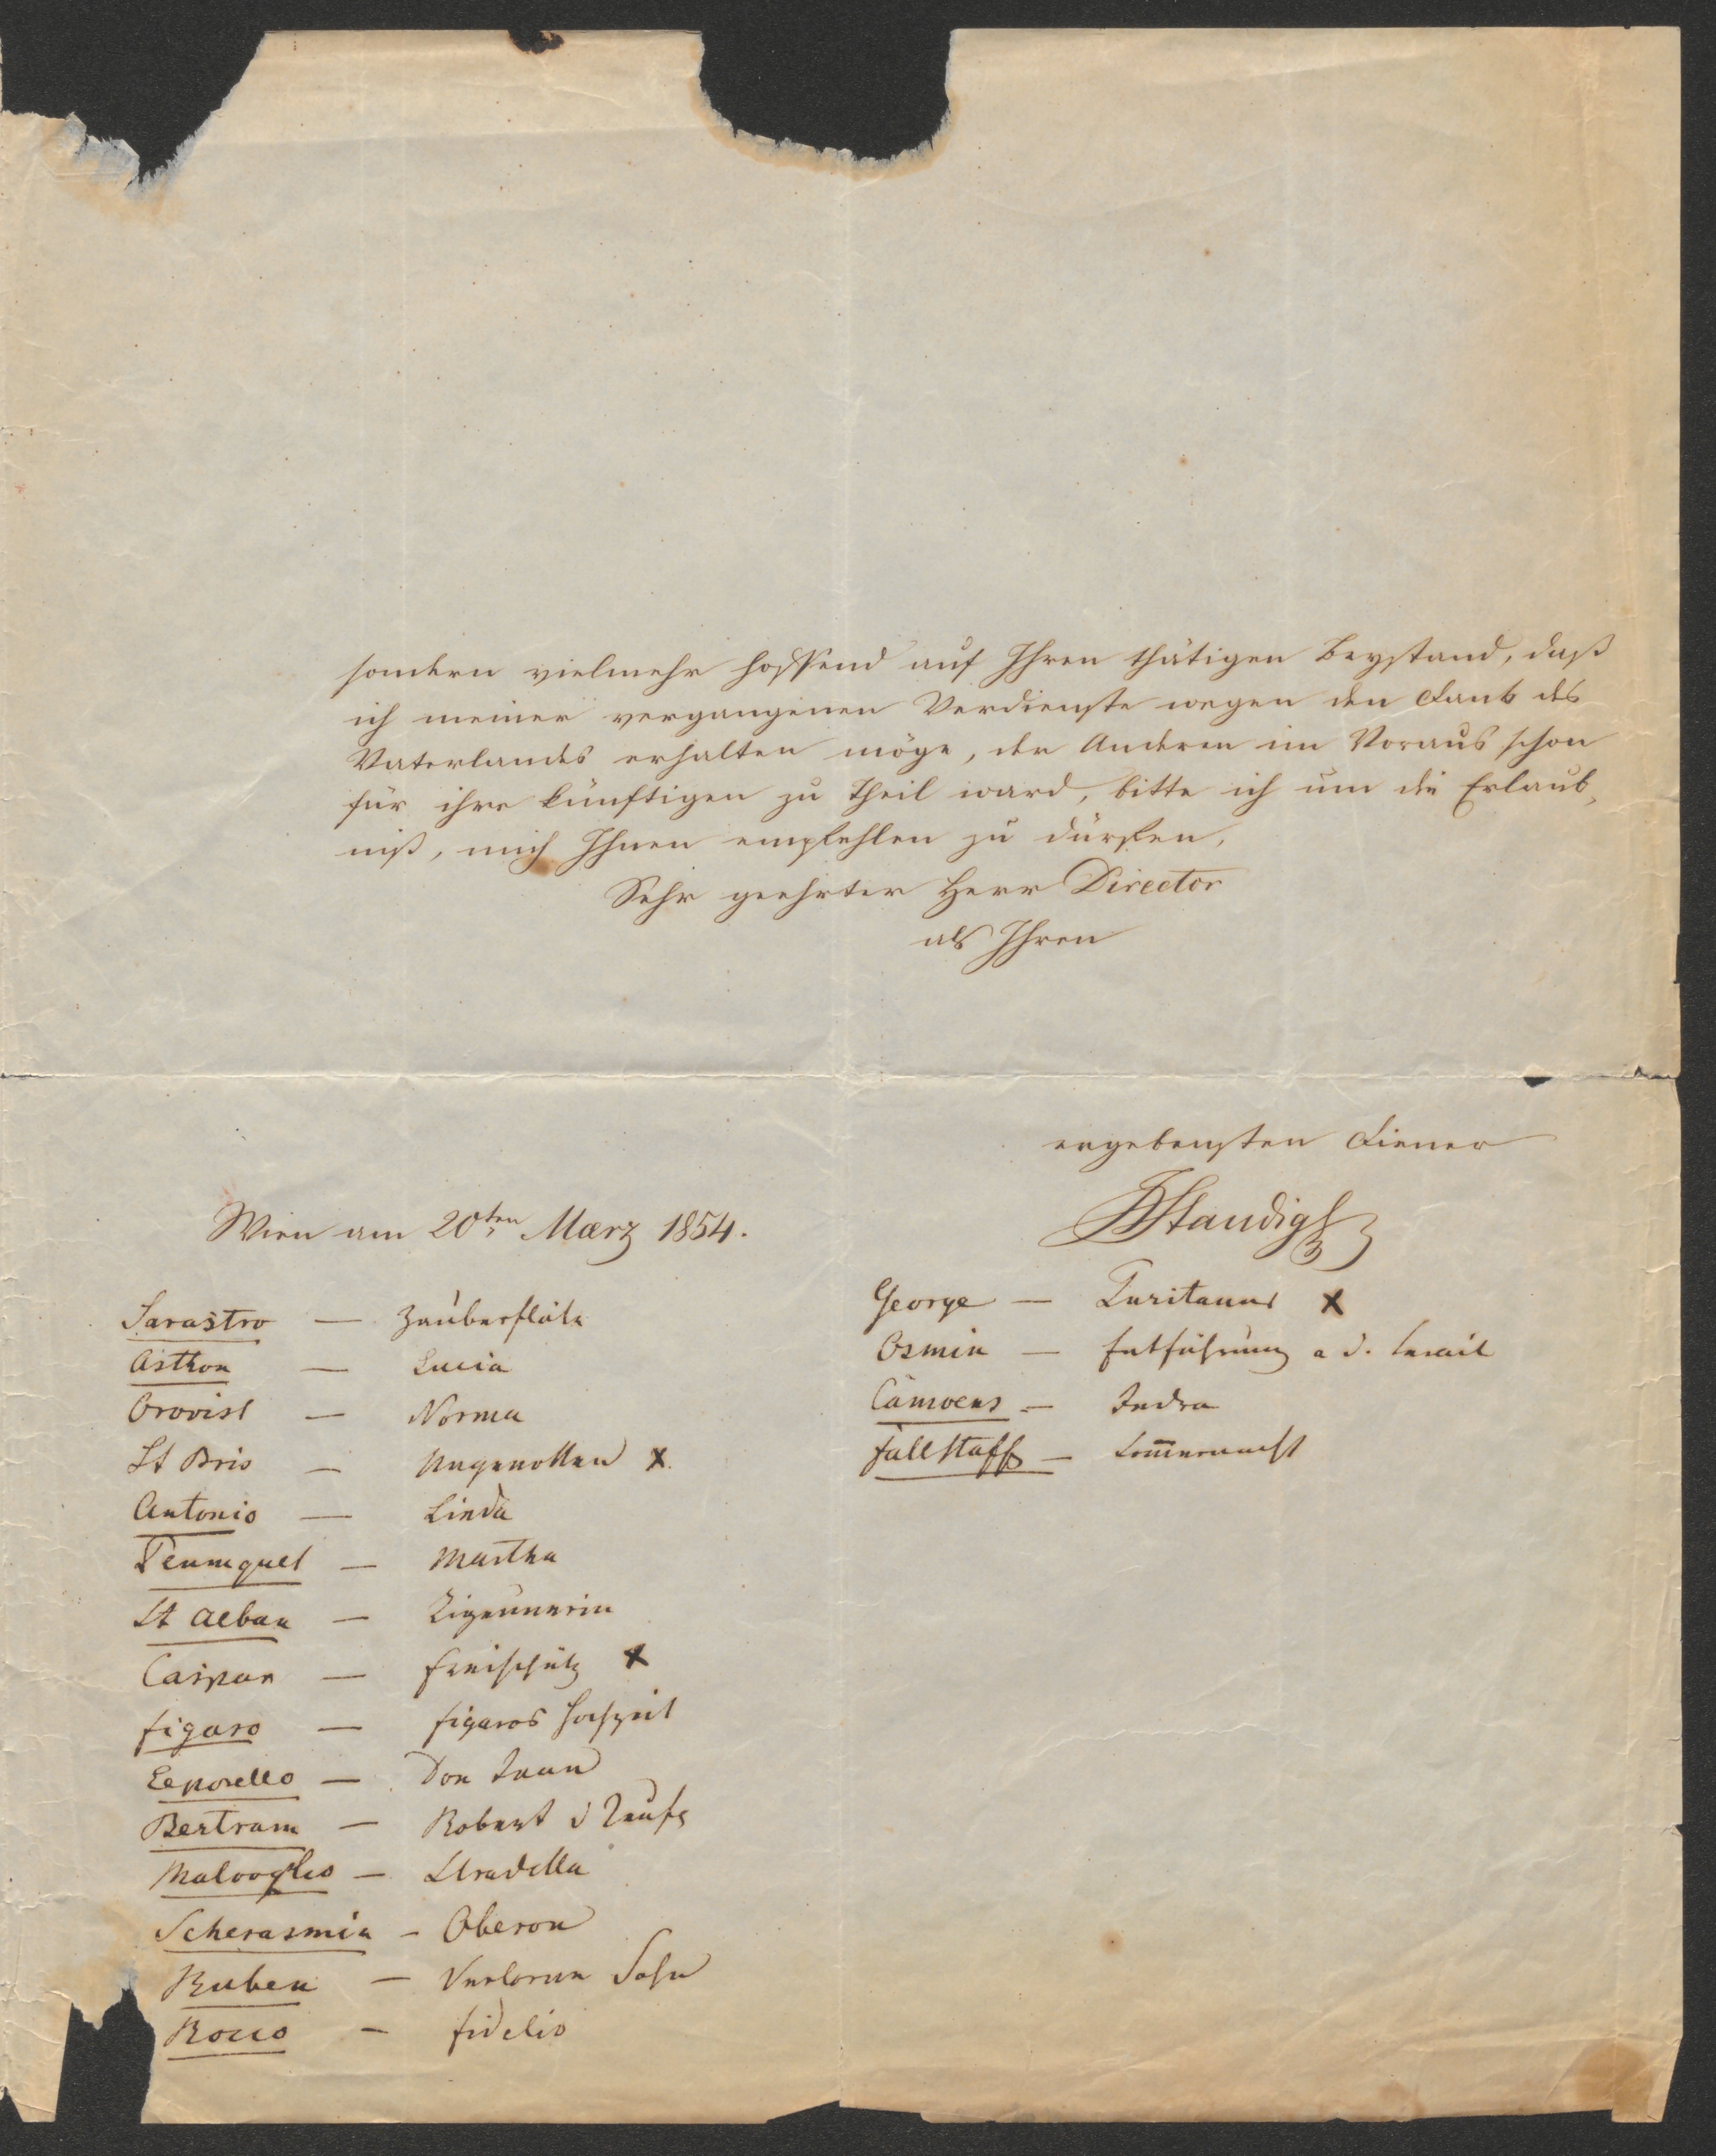 sondern vielmehr hoffend auf Ihren thätigen Beystand, daß
ich meiner vergangenen Verdienste wegen den Dank des
Vaterlandes erhalten möge, der Anderen im Voraus schon
für ihre künftigen zu Theil ward, bitte ich um die Erlaub,
niß, mich Ihnen empfehlen zu dürfen,
Sehr geehrter Herr Director
als Ihren
ergebensten Diener
JStaudigl
Wien am 20ten März 1854.
Sarastro — Zauberflöte
Asthon — Lucia
Orovist — Norma
St Bris — Hugenotten x
Antonio — Linda
Plumquet — Martha
St Alban — Zigeunerin
Caspar — Freischütz x
Figaro — Figaros Hochzeit
Leporello — Don Juan
Bertram — Robert d Teufe
Malvoglio — Stradella
Scherasmin — Oberon
Ruben — Verlorne Sohn
Rocco — Fidelio
George — Puritaner x
Osmin — Entführung a d. Serail
Camoens — Indra
Fallstaff — Som̄ernacht